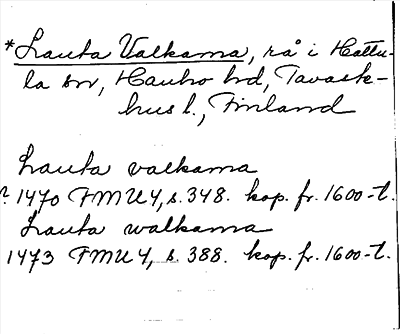 *Lauta Valkama, rå i Hattu-
la sn, Hauho hd, Tavaste-
hus l., Finland
Lauta valkama
? 1470 FMU 4, s. 348. kop. fr. 1600-t.
Lauta walkama
1473 FMU 4, s. 388. kop. fr. 1600-t.